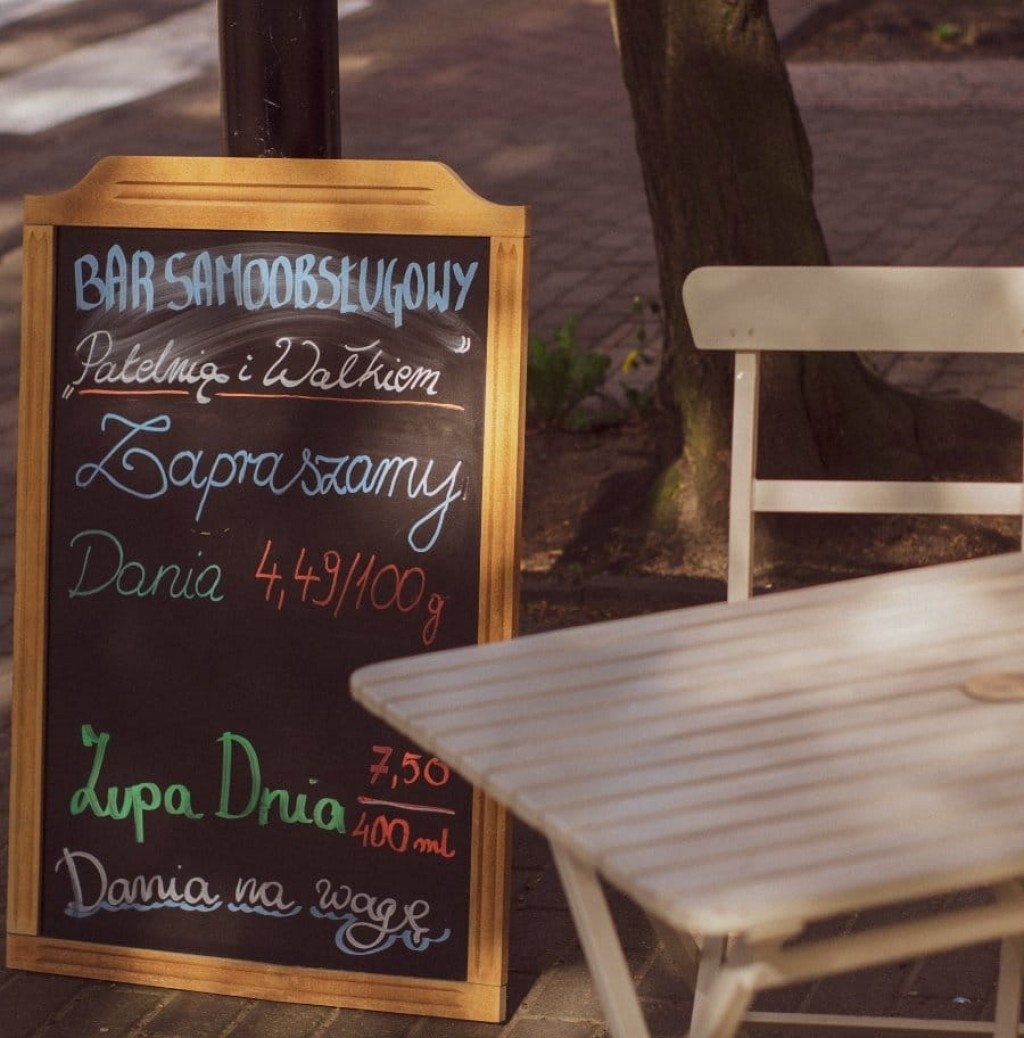 BAR SAMOOBSŁUGOWY
„Patelnią i Wałkiem”
Zapraszamy
Dania 4,49/100g
Zupa Dnia 7,50
400 ml
Dania na wagę